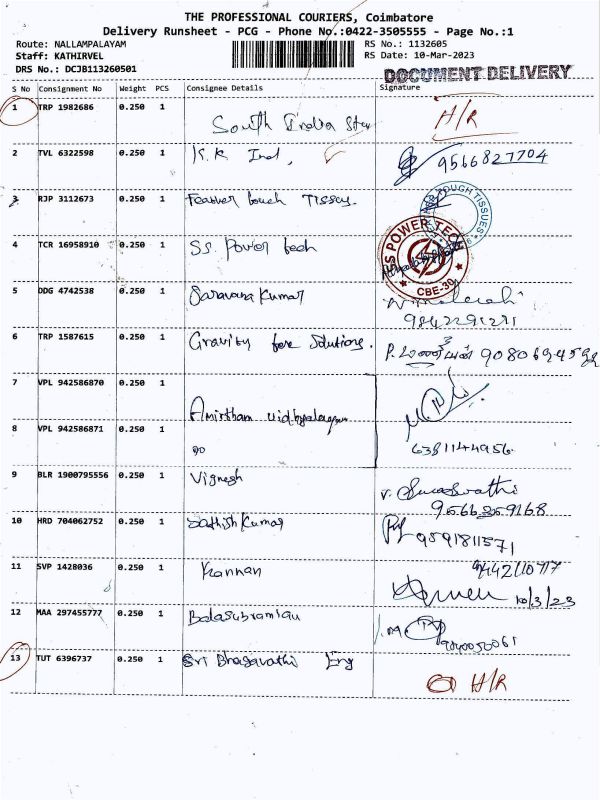 THE PROFESSIONAL COURIERS, Coimbatore
Delivery Runsheet - PCG - Phone No.:0422-3505555 - Page No.:1
Route: NALLAMPALAYAM
Staff: KATHIRVEL
DRS No.: DCJB113260501
RS No.: 1132605
RS Date: 10-Mar-2023
DOCUMENT DELIVERY
S No Consignment No Weight PCS Consignee Details Signature
1 TRP 1982686 0.250 1 South India H/R
2 TVL 6322598 0.250 1 K.K Ind, 9566827704
3 RJP 3112673 0.250 1 Feather touch Tissus. TOUCH TISSUES
4 TCR 16958910 0.250 1 S.S. Power tech SS POWER TECH CBE-30
5 DDG 4742538 0.250 1 Saravana Kumar
6 TRP 1587615 0.250 1 Gravity fore Solutions. P.
7 VPL 942586870 0.250 1 Amirtham
8 VPL 942586871 0.250 1 DO 6381144956.
9 BLR 1900795556 0.250 1 Vignesh V. Saraswathi
9566359168
10 HRD 704062752 0.250 1 Sathish Kumar 9591811571
11 SVP 1428036 0.250 1 Kannan
10/3/23
12 MAA 297455777 0.250 1 Balasubramiau
13 TUT 6396737 0.250 1 Sri Bhagavathi Eng H/R